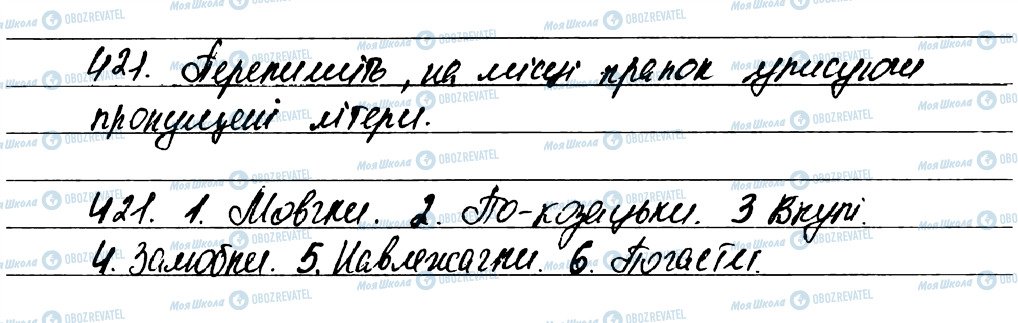 421. Перепишіть, на місці крапок уписуючи
пропущені літери.
421. 1. Мовчки. 2. По-козацьки. 3 Вкупі.
4. Залюбки. 5. Навлежачки. 6. Почасти.